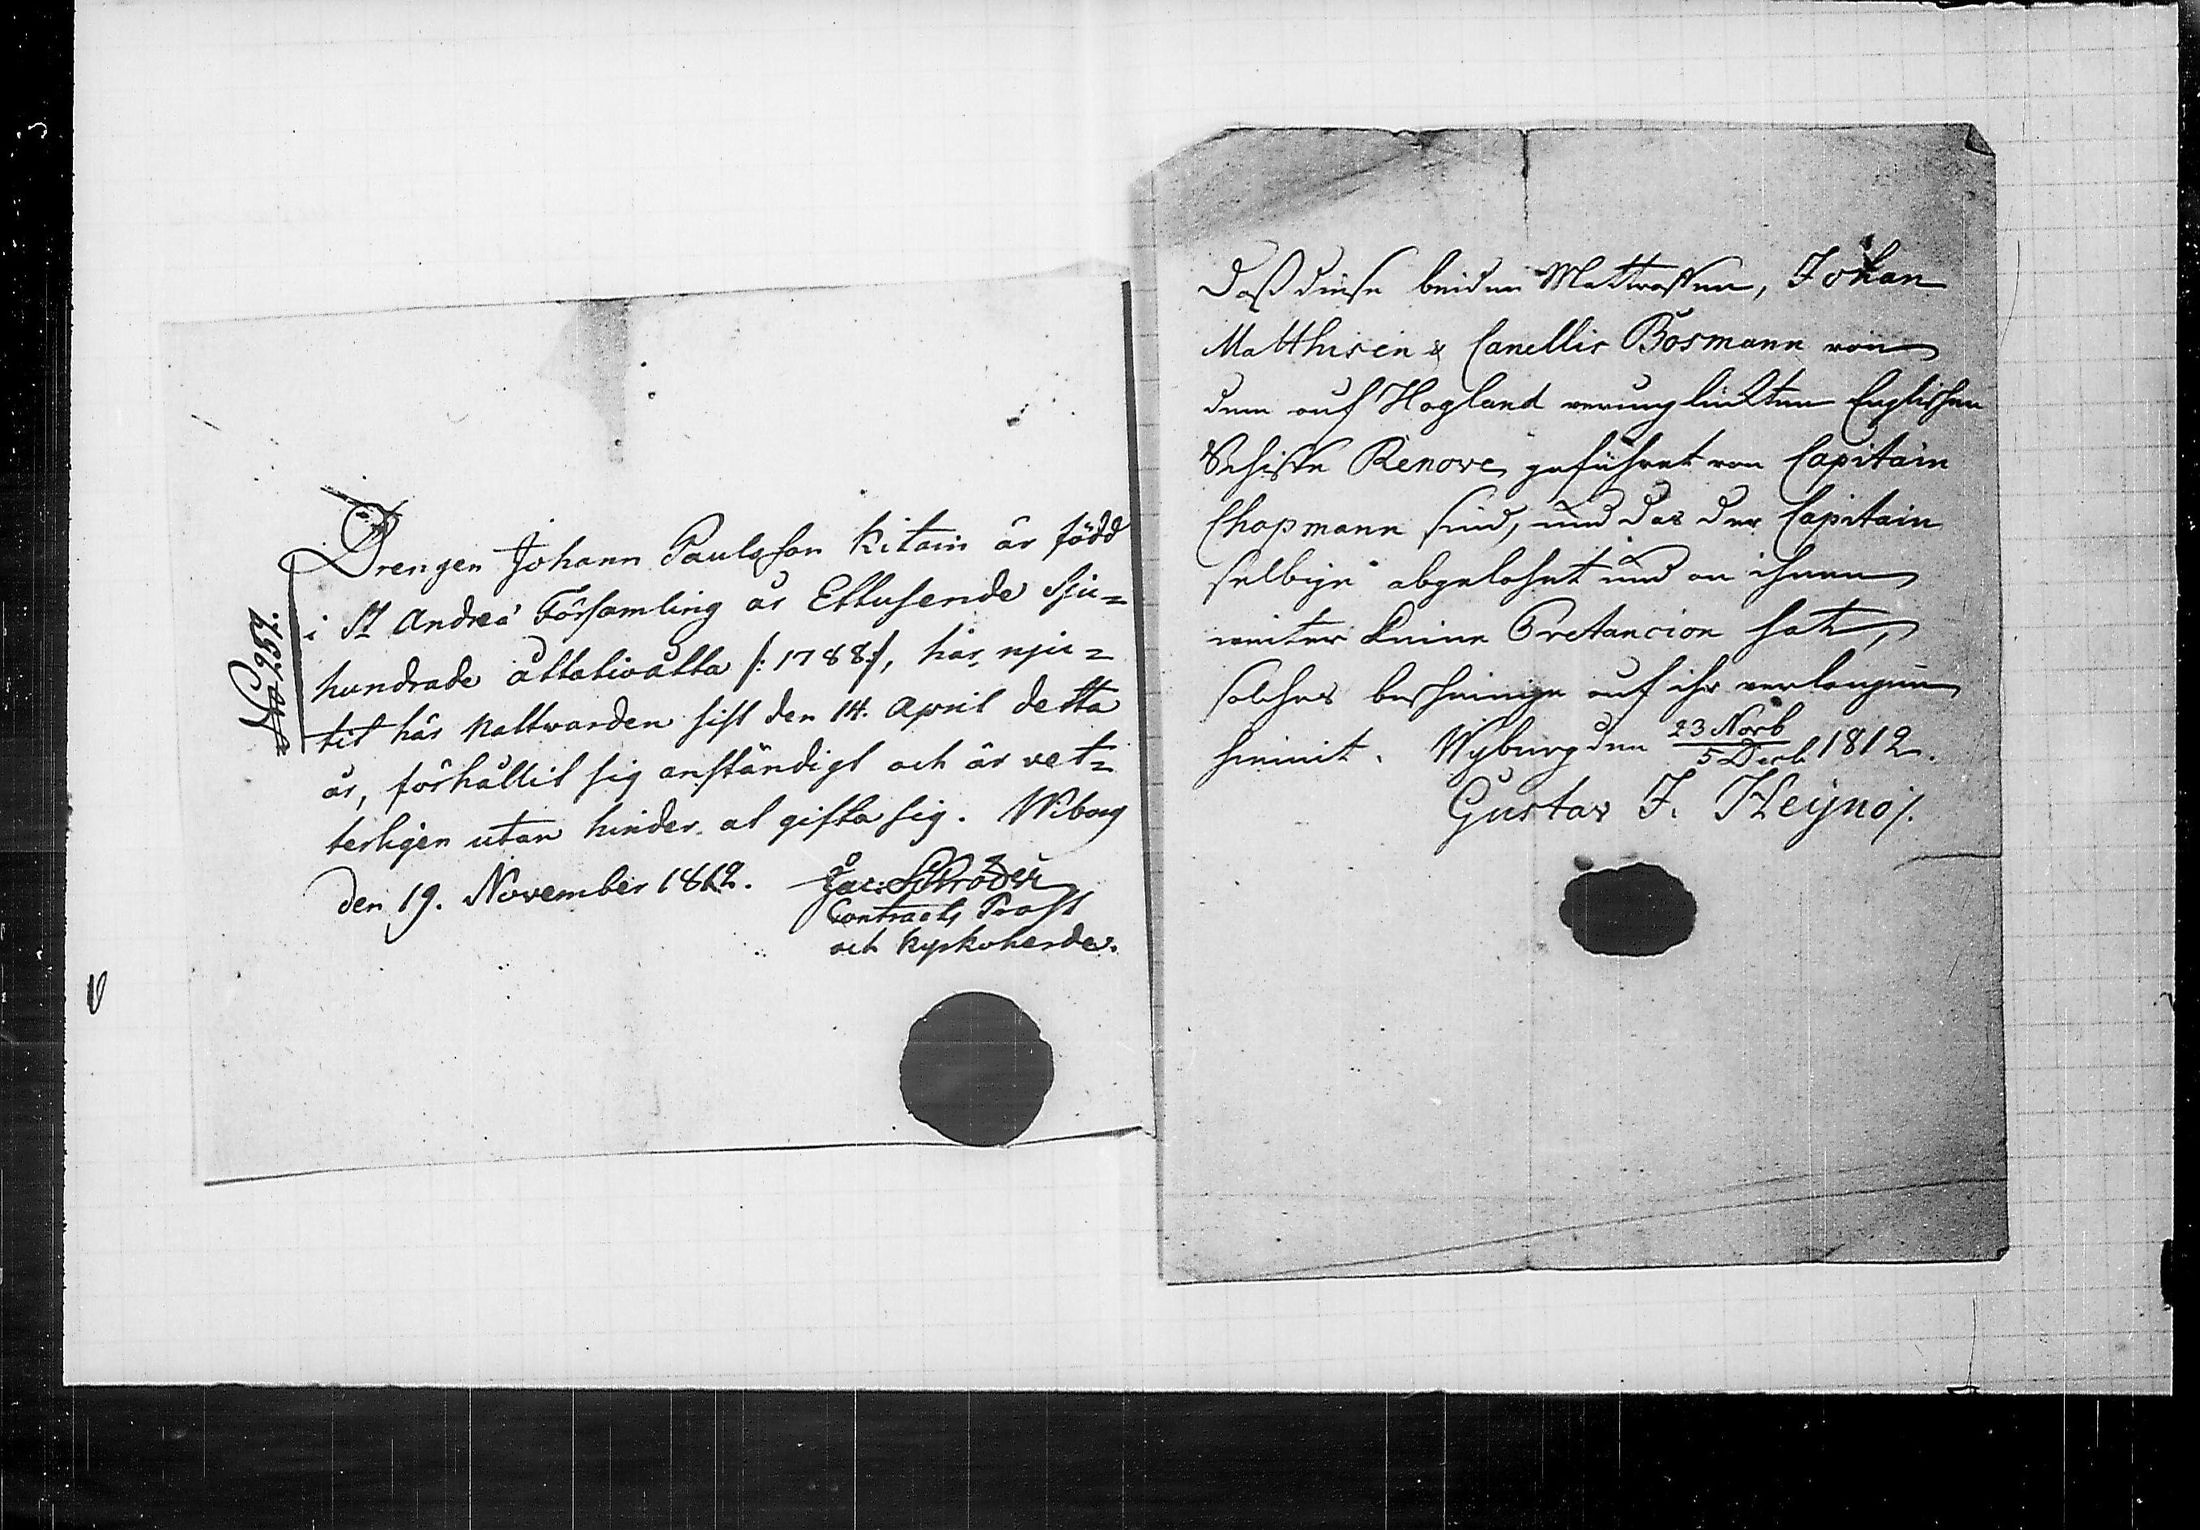 No 257.
Drengen Johann Paulsson Kitain är född
i St Andreæ Församling år Ettusende Sju=
hundrade åttatioåtta /: 1788 :/, har nju=
tit här nattwarden sist den 14. April detta
år, förhållit sig anständigt och är vet=
terligen utan hinder at gifta sig. Wiborg
den 19. November 1812.
Jac: Schröder
Contracts Prost
och Kyrkoherde.
Daß diese beiden Mattrossen, Johan
Matthisen & Canellis Bosmann von
dem auf Hogland verunglückten Englischen
Schiffe Renove, geführet von Capitain
Chapmann sind, und das der Capitain
selbige abgelohnt und an ihnen
weiter keine Pretancion hat,
solches bescheinige auf ihr verlangen
hiemit. Wyburg den 23 Novb / 5 Decb 1812.
Gustav F. Heyno/.